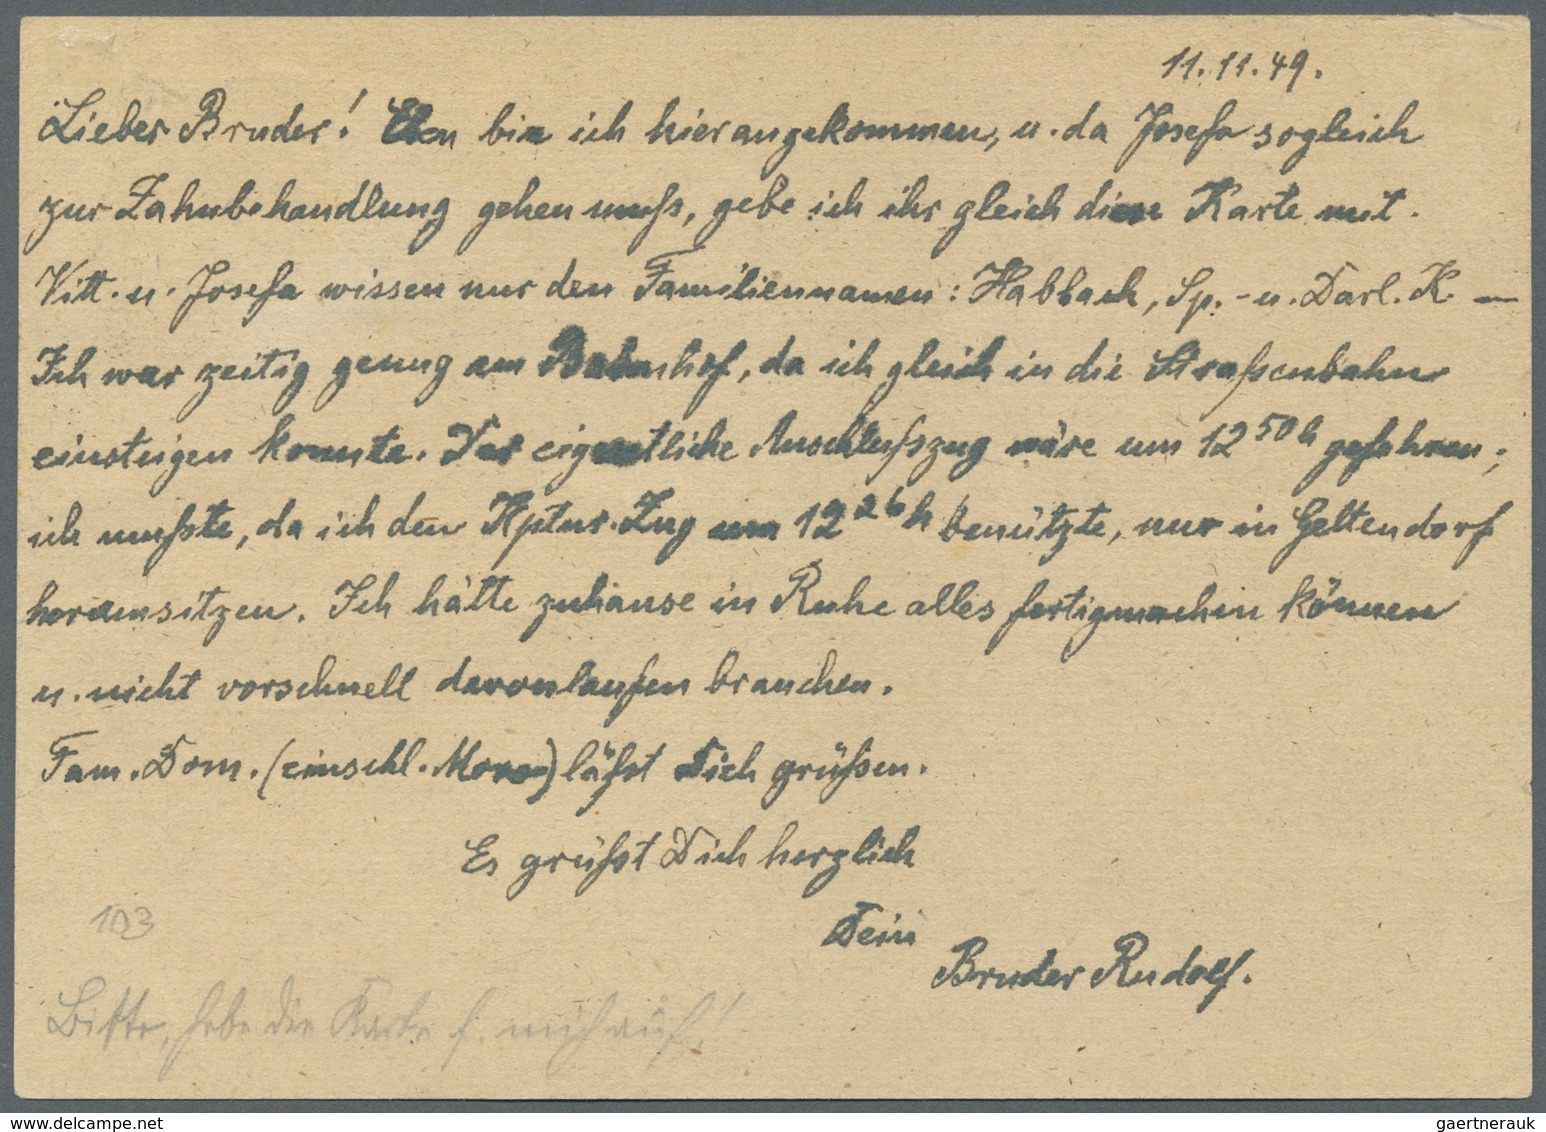 11.11.49.
Lieber Bruder! Eben bin ich hier angekommen, u. da Josefa sogleich
zur Zahnbehandlung gehen muß, gebe ich ihr gleich diese Karte mit.
Vitt. u. Josefa wissen nur den Familiennamen: Habbach, Sp.- u. Darl. K. —
Ich war zeitig genug am Bahnhof, da ich gleich in die Straßenbahn
einsteigen konnte. Der eigentliche Anschlußzug wäre um 12 50 h gefahren;
ich mußte, da ich den Kptur. Zug um 12 26 h benützte, nur in Geltendorf
herumsitzen. Ich hätte zuhause in Ruhe alles fertigmachen können
u. nicht vorschnell davonlaufen brauchen.
Fam. Dom. (einschl. Moro) läßt Dich grüßen.
Es grüßt Dich herzlich
Dein
Bruder Rudolf.
103
Bitte, hebe die Karte f. mich auf!
gaertnerauk @ delcampe.net